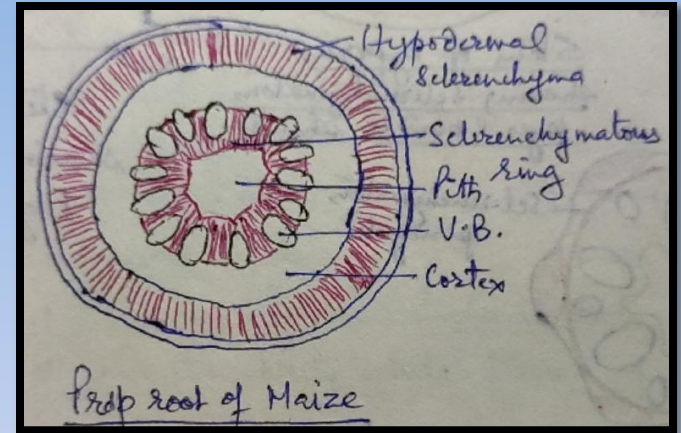 Hypodermal
Sclerenchyma
Sclerenchymatous
ring
Pith
V.B.
Cortex
Prop root of Maize